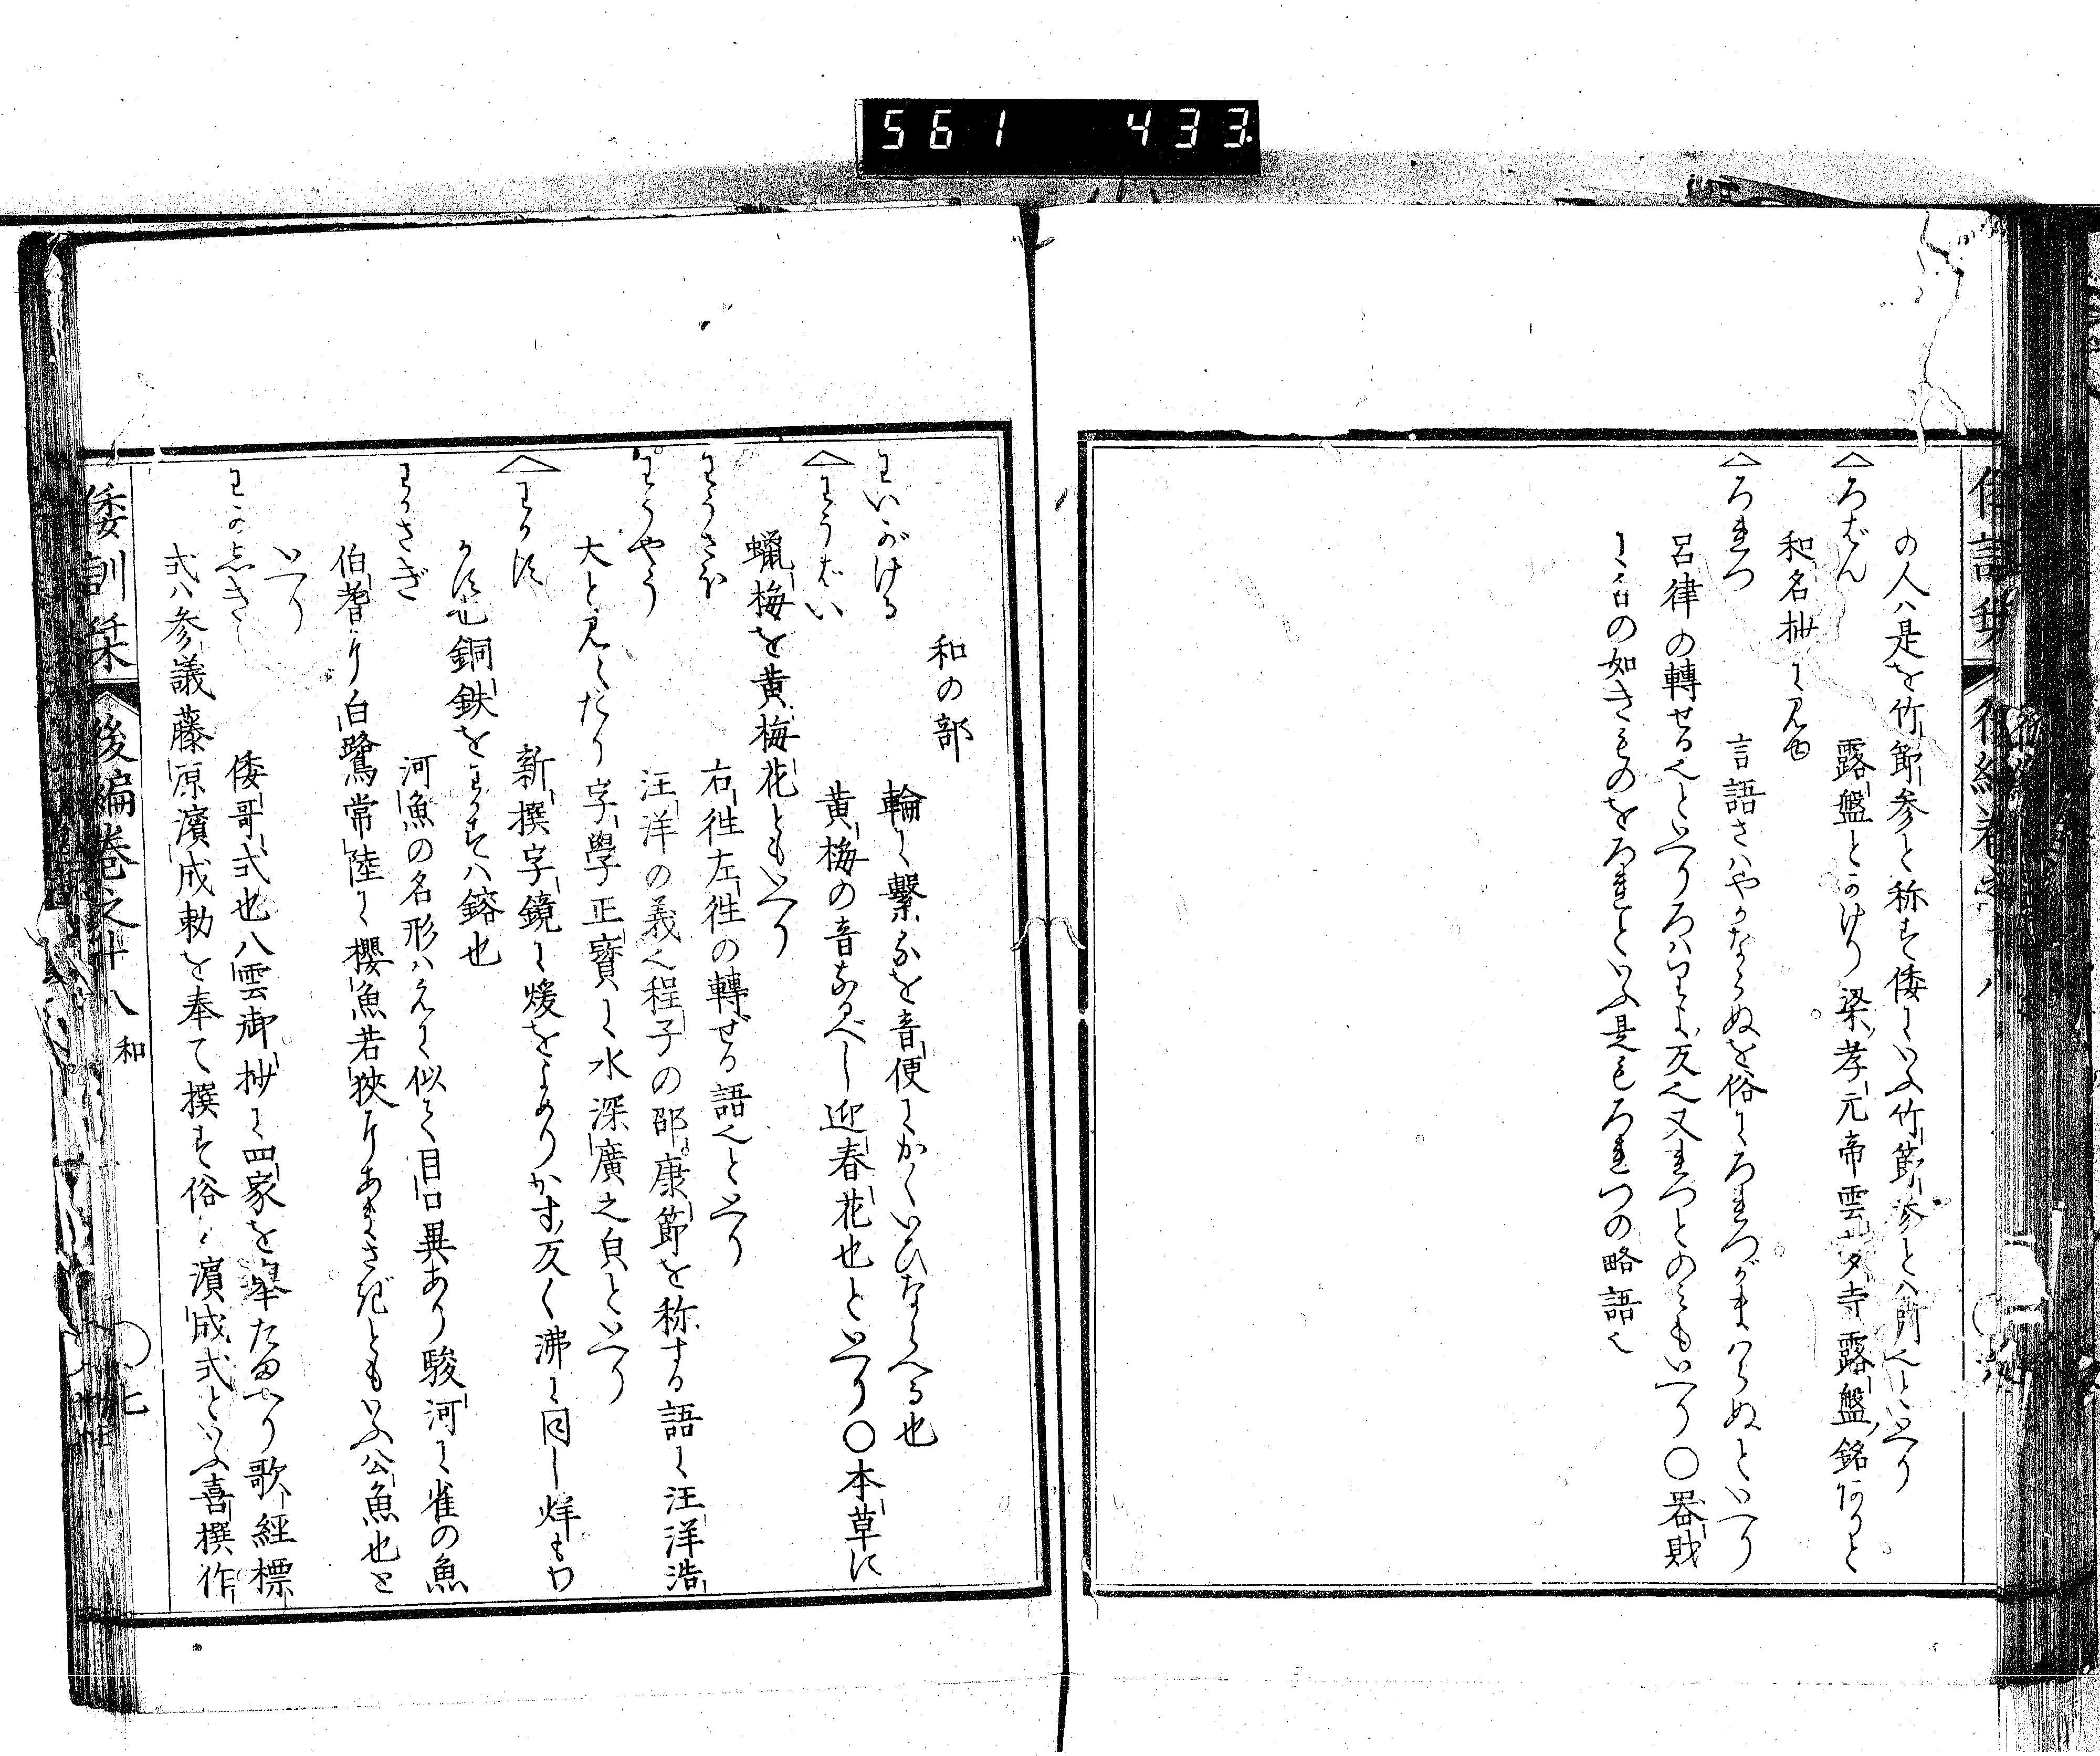 561 433
の人ハ是を竹節参と称す倭にいふ竹節参とハ別也といへり
ろばん 露盤とかけり梁孝元帝雲 寺露盤銘ありと
和名抄に見ゆ
ろれつ 言語さハやかならぬを俗にろれつがまハらぬといへり
呂律の轉せる也といへりろハりよ反也又れつとのみもいへり〇器財
に の如きものをろれといふ是もろれつの略語也
和の部
わいがける 輪に繋るを音便にかくいひならへる也
わうばい 黄梅の音なるべし迎春花也といへり〇本草に
蠟梅を黄梅花ともいへり
わうさわ 右往左往の轉ぜる語也といへり
わうやう 汪洋の義也程子の邵康節を称する語に汪洋浩
大と見えたり字學正寳に水深廣之皃といへり
わかす 新撰字鏡に煖をよめりかす反く沸に同し烊もわ
かす也銅鉄をわかすハ鎔也
わかさぎ 河魚の名形ハえに似て目口異あり駿河に雀の魚
伯耆に白鷺常陸に櫻魚若狭にあまさぎともいふ公魚也と
いへり
わかしき 倭哥式也八雲御抄に四家を挙たまへり歌經標
式ハ参議藤原濵成勅を奉て撰す俗に濵成式といふ喜撰作
倭訓栞 後編巻之十八 和